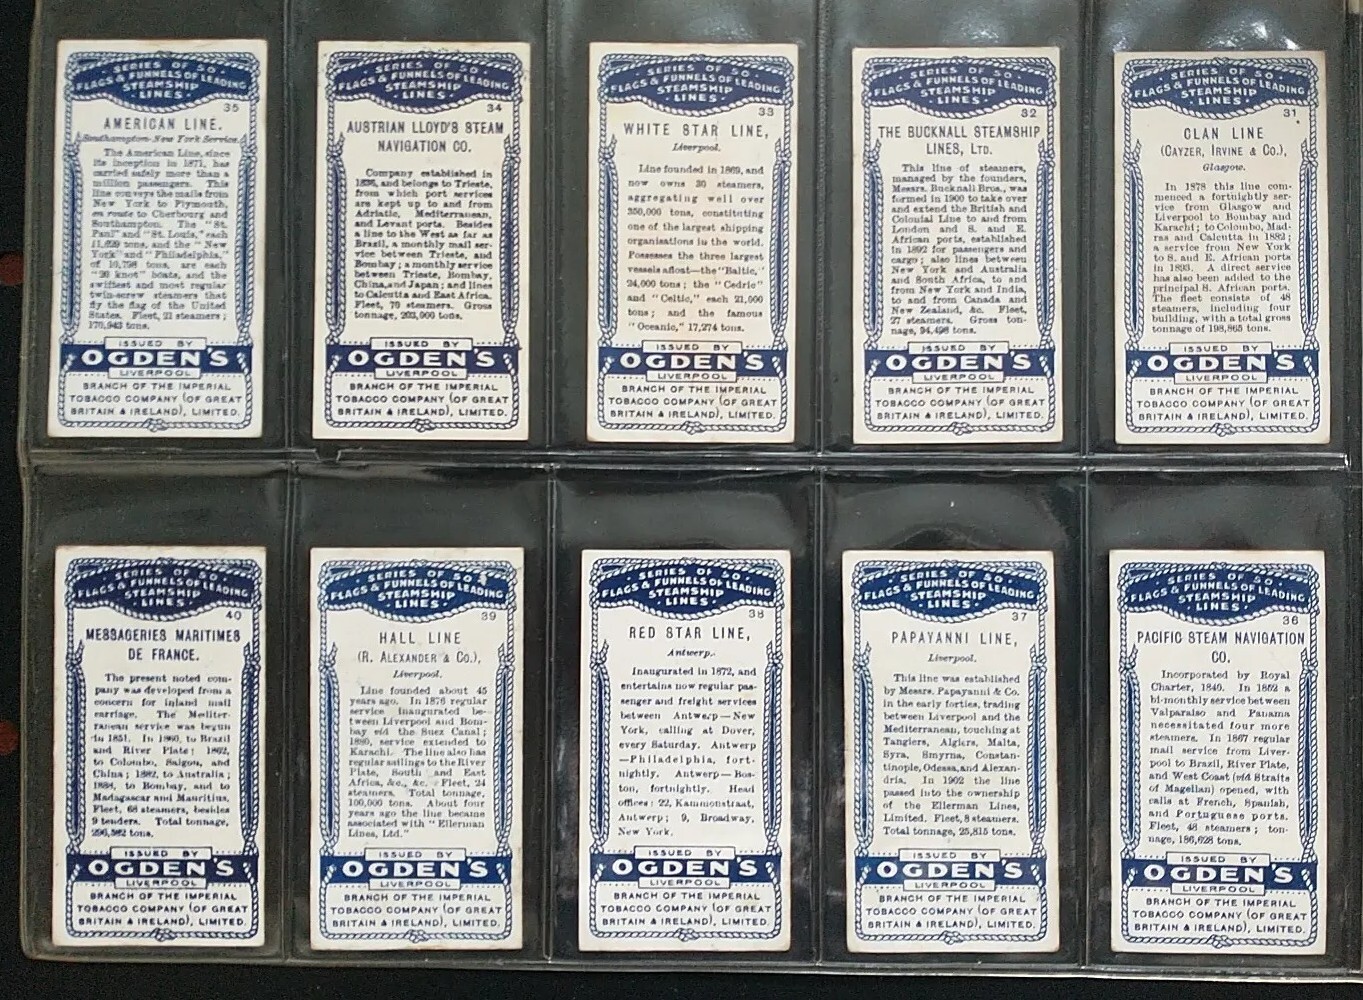 SERIES OF 50
FLAGS & FUNNELS OF LEADING
STEAMSHIP
LINES
35
AMERICAN LINE.
Southampton-New York Service.
The American Line, since
its inception in 1871, has
carried safely more than a
million passengers. This
line conveys the mails from
New York to Plymouth,
en route to Cherbourg and
Southampton. The "St.
Paul" and "St. Louis," each
11,629 tons, and the "New
York" and "Philadelphia,"
of 10,798 tons, are each
"20 knot" boats, and the
swiftest and most regular
twin-screw steamers that
fly the flag of the United
States. Fleet, 21 steamers;
170,943 tons.
ISSUED BY
OGDEN'S
LIVERPOOL
BRANCH OF THE IMPERIAL
TOBACCO COMPANY (OF GREAT
BRITAIN & IRELAND), LIMITED.
SERIES OF 50
FLAGS & FUNNELS OF LEADING
STEAMSHIP
LINES
34
AUSTRIAN LLOYD'S STEAM
NAVIGATION CO.
Company established in
1836, and belongs to Trieste,
from which port services
are kept up to and from
Adriatic, Mediterranean,
and Levant ports. Besides
a line to the West as far as
Brazil, a monthly mail ser-
vice between Trieste, and
Bombay; a monthly service
between Trieste, Bombay,
China, and Japan; and lines
to Calcutta and East Africa.
Fleet, 70 steamers. Gross
tonnage, 203,000 tons.
ISSUED BY
OGDEN'S
LIVERPOOL
BRANCH OF THE IMPERIAL
TOBACCO COMPANY (OF GREAT
BRITAIN & IRELAND), LIMITED.
SERIES OF 50
FLAGS & FUNNELS OF LEADING
STEAMSHIP
LINES
33
WHITE STAR LINE,
Liverpool.
Line founded in 1869, and
now owns 30 steamers,
aggregating well over
350,000 tons, constituting
one of the largest shipping
organisations in the world.
Possesses the three largest
vessels afloat—the "Baltic,"
24,000 tons; the "Cedric"
and "Celtic," each 21,000
tons; and the famous
"Oceanic," 17,274 tons.
ISSUED BY
OGDEN'S
LIVERPOOL
BRANCH OF THE IMPERIAL
TOBACCO COMPANY (OF GREAT
BRITAIN & IRELAND), LIMITED.
SERIES OF 50
FLAGS & FUNNELS OF LEADING
STEAMSHIP
LINES
32
THE BUCKNALL STEAMSHIP
LINES, LTD.
This line of steamers,
managed by the founders,
Messrs. Bucknall Bros., was
formed in 1900 to take over
and extend the British and
Colonial Line to and from
London and S. and E.
African ports, established
in 1892 for passengers and
cargo; also lines between
New York and Australia
and South Africa, to and
from New York and India,
to and from Canada and
New Zealand, &c. Fleet,
27 steamers. Gross ton-
nage, 94,498 tons.
ISSUED BY
OGDEN'S
LIVERPOOL
BRANCH OF THE IMPERIAL
TOBACCO COMPANY (OF GREAT
BRITAIN & IRELAND), LIMITED.
SERIES OF 50
FLAGS & FUNNELS OF LEADING
STEAMSHIP
LINES
31
CLAN LINE
(CAYZER, IRVINE & CO.),
Glasgow.
In 1878 this line com-
menced a fortnightly ser-
vice from Glasgow and
Liverpool to Bombay and
Karachi; to Colombo, Mad-
ras and Calcutta in 1882;
a service from New York
to S. and E. African ports
in 1893. A direct service
has also been added to the
principal S. African ports.
The fleet consists of 48
steamers, including four
building, with a total gross
tonnage of 198,865 tons.
ISSUED BY
OGDEN'S
LIVERPOOL
BRANCH OF THE IMPERIAL
TOBACCO COMPANY (OF GREAT
BRITAIN & IRELAND), LIMITED.
SERIES OF 50
FLAGS & FUNNELS OF LEADING
STEAMSHIP
LINES
40
MESSAGERIES MARITIMES
DE FRANCE.
The present noted com-
pany was developed from a
concern for inland mail
carriage. The Mediter-
ranean service was begun
in 1851. In 1860, to Brazil
and River Plate; 1862,
to Colombo, Saigon, and
China; 1882, to Australia;
1888, to Bombay, and to
Madagascar and Mauritius.
Fleet, 68 steamers, besides
9 tenders. Total tonnage,
296,582 tons.
ISSUED BY
OGDEN'S
LIVERPOOL
BRANCH OF THE IMPERIAL
TOBACCO COMPANY (OF GREAT
BRITAIN & IRELAND), LIMITED.
SERIES OF 50
FLAGS & FUNNELS OF LEADING
STEAMSHIP
LINES
39
HALL LINE
(R. ALEXANDER & CO.),
Liverpool.
Line founded about 45
years ago. In 1876 regular
service inaugurated be-
tween Liverpool and Bom-
bay viâ the Suez Canal;
1880, service extended to
Karachi. The line also has
regular sailings to the River
Plate, South and East
Africa, &c., &c. Fleet, 24
steamers. Total tonnage,
100,000 tons. About four
years ago the line became
associated with "Ellerman
Lines, Ltd."
ISSUED BY
OGDEN'S
LIVERPOOL
BRANCH OF THE IMPERIAL
TOBACCO COMPANY (OF GREAT
BRITAIN & IRELAND), LIMITED.
SERIES OF 50
FLAGS & FUNNELS OF LEADING
STEAMSHIP
LINES
38
RED STAR LINE,
Antwerp.
Inaugurated in 1872, and
entertains now regular pas-
senger and freight services
between Antwerp—New
York, calling at Dover,
every Saturday. Antwerp
—Philadelphia, fort-
nightly. Antwerp—Bos-
ton, fortnightly. Head
offices: 22, Kammonstraat,
Antwerp; 9, Broadway,
New York.
ISSUED BY
OGDEN'S
LIVERPOOL
BRANCH OF THE IMPERIAL
TOBACCO COMPANY (OF GREAT
BRITAIN & IRELAND), LIMITED.
SERIES OF 50
FLAGS & FUNNELS OF LEADING
STEAMSHIP
LINES
37
PAPAYANNI LINE,
Liverpool.
This line was established
by Messrs. Papayanni & Co.
in the early forties, trading
between Liverpool and the
Mediterranean, touching at
Tangiers, Algiers, Malta,
Syra, Smyrna, Constan-
tinople, Odessa, and Alexan-
dria. In 1902 the line
passed into the ownership
of the Ellerman Lines,
Limited. Fleet, 8 steamers.
Total tonnage, 25,815 tons.
ISSUED BY
OGDEN'S
LIVERPOOL
BRANCH OF THE IMPERIAL
TOBACCO COMPANY (OF GREAT
BRITAIN & IRELAND), LIMITED.
SERIES OF 50
FLAGS & FUNNELS OF LEADING
STEAMSHIP
LINES
36
PACIFIC STEAM NAVIGATION
CO.
Incorporated by Royal
Charter, 1840. In 1852 a
bi-monthly service between
Valparaiso and Panama
necessitated four more
steamers. In 1867 regular
mail service from Liver-
pool to Brazil, River Plate,
and West Coast (viâ Straits
of Magellan) opened, with
calls at French, Spanish,
and Portuguese ports.
Fleet, 48 steamers; ton-
nage, 186,628 tons.
ISSUED BY
OGDEN'S
LIVERPOOL
BRANCH OF THE IMPERIAL
TOBACCO COMPANY (OF GREAT
BRITAIN & IRELAND), LIMITED.